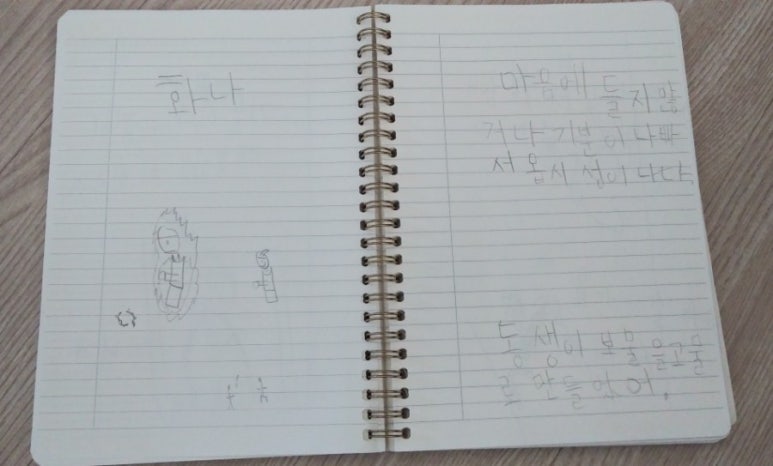 화나
마음에 들지않
거나 기분이 나빠
서 몹시 성이 나다
동생이 보물을고물
로 만들었어.